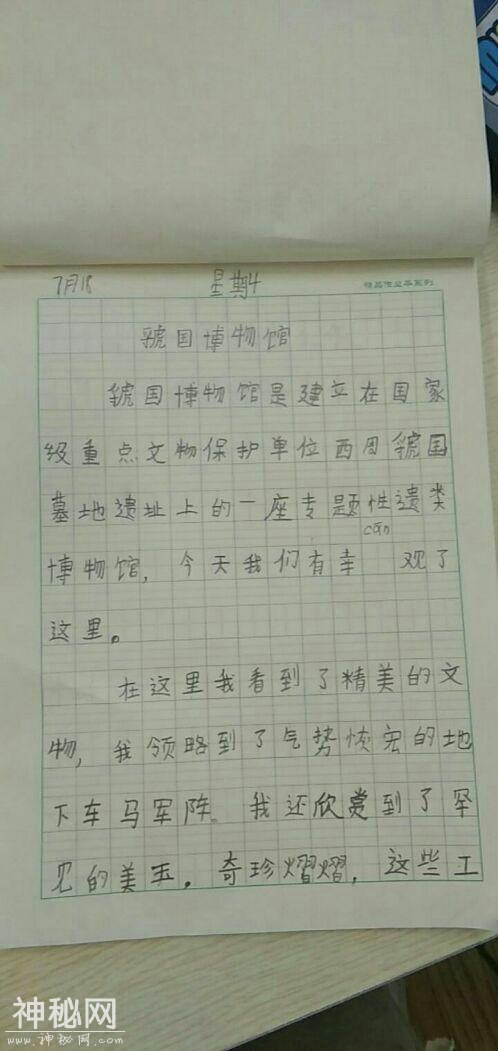 7月18 星期4
精品作业本系列
虢国博物馆
虢国博物馆是建立在国家
级重点文物保护单位西周虢国
墓地遗址上的一座专题性遗类
cān
博物馆,今天我们有幸 观了
这里。
在这里我看到了精美的文
物,我领略到了气势恢宏的地
下车马军阵。我还欣赏到了罕
见的美玉。奇珍熠熠,这些工
神秘网
www.神秘网.com